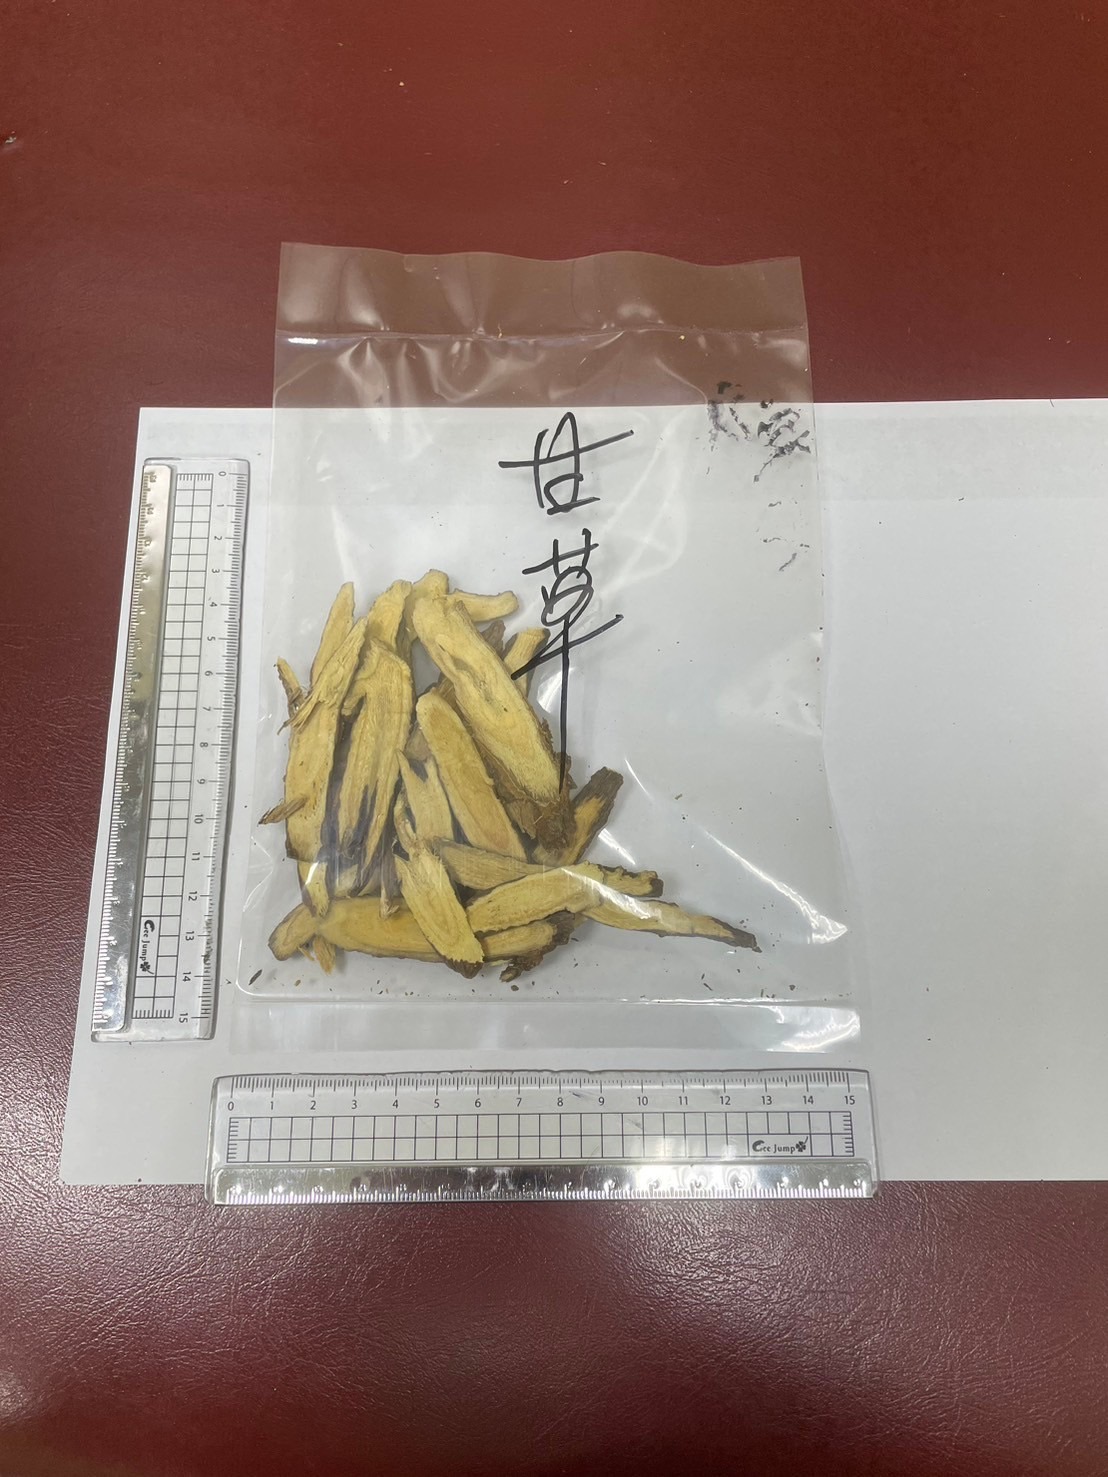 甘草
0 1 2 3 4 5 6 7 8 9 10 11 12 13 14 15
Gee Jump
0 1 2 3 4 5 6 7 8 9 10 11 12 13 14 15
Gee Jump